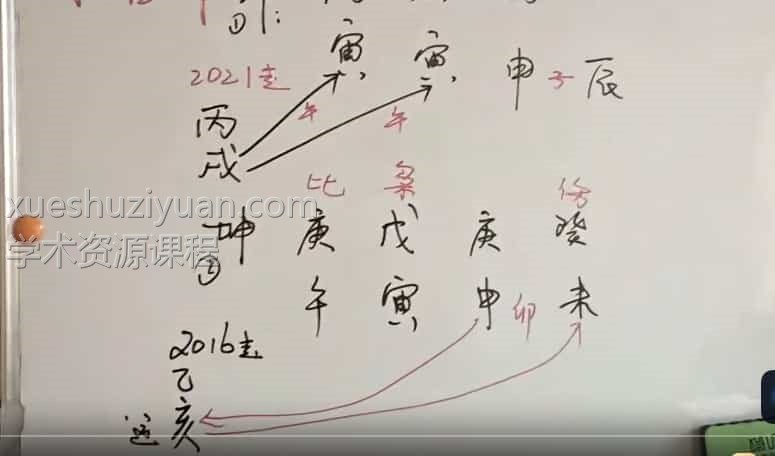 ①
寅 寅 申 子 辰
2021走
午 午
丙
戌
比 枭 伤
坤 庚 戊 庚 癸
②
午 寅 申 卯 未
2016走
乙
运 亥
xueshuziyuan.com
学术资源课程